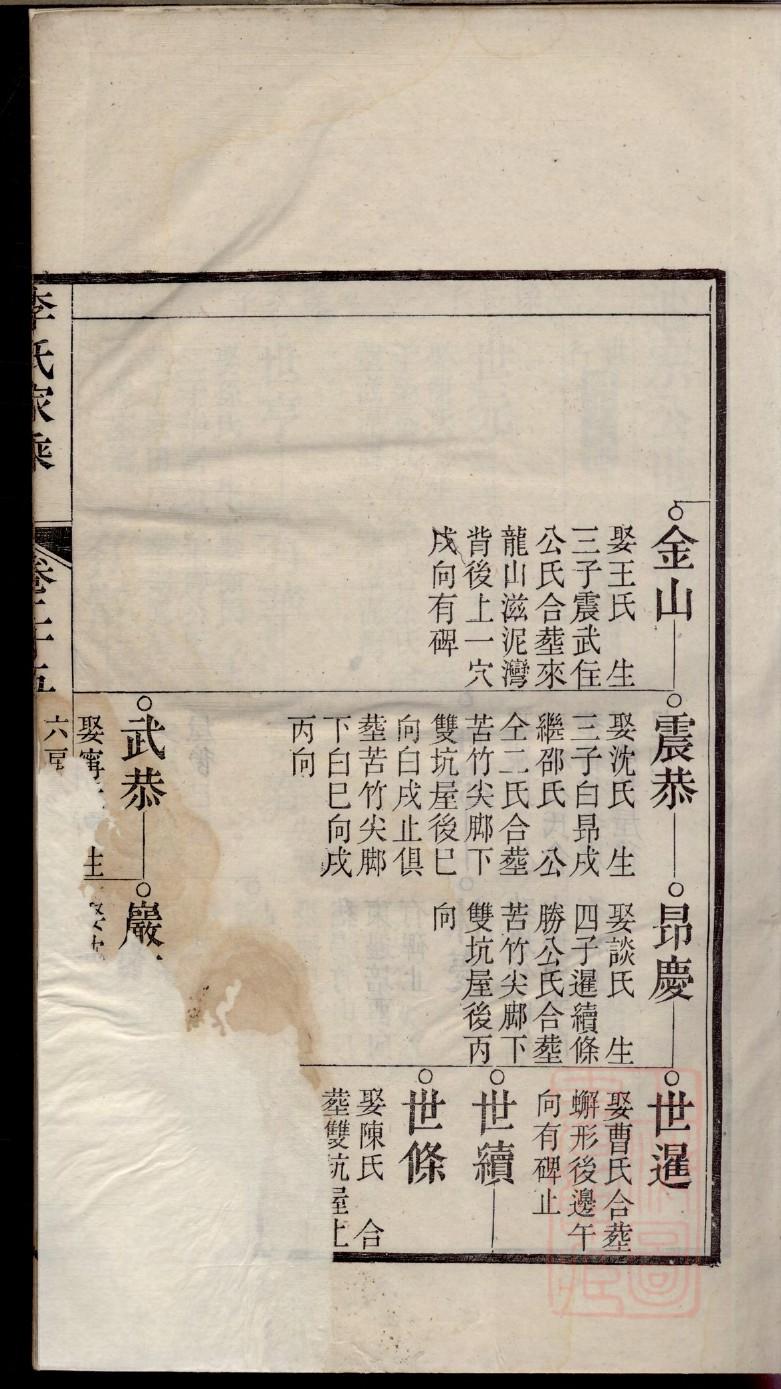 金山
娶王氏 生
三子震武任
公氏合塟來
龍山滋泥灣
背後上一穴
戌向有碑
震恭
娶沈氏 生
三子白昂戌
繼邵氏 公
仝二氏合塟
苦竹尖脚下
雙坑屋後巳
向白戌止俱
塟苦竹尖脚
下白巳向戌
丙向
武恭
娶甯 生
昂慶
娶談氏 生
四子暹續條
勝公氏合塟
苦竹尖脚下
雙坑屋後丙
向
巖
世暹
娶曹氏合塟
蠏形後邊午
向有碑止
世續
世條
娶陳氏 合
塟雙坑屋上
李氏家乘
卷二十五
六